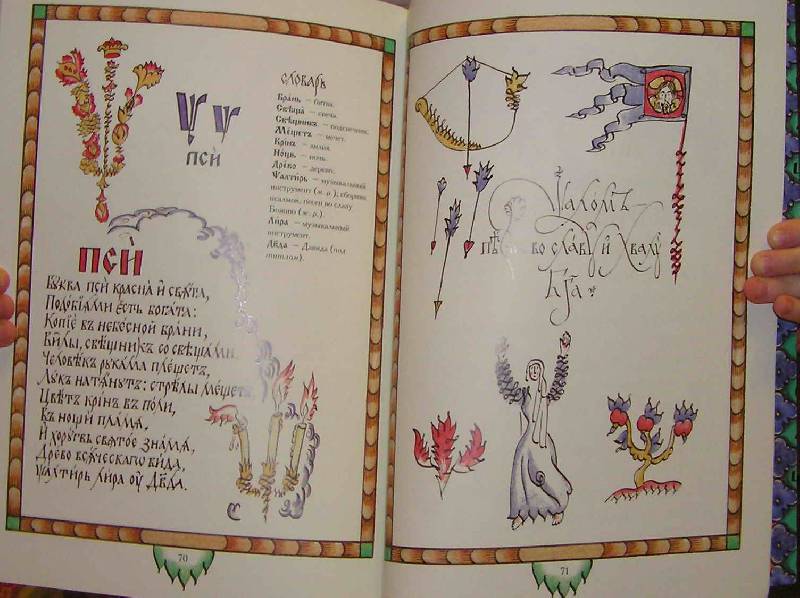 Ѱ ѱ
ПСИ
СЛОВАРЬ
Брань — битва.
Свѣща — свеча.
Свѣщникъ — подсвечник.
Мещетъ — мечет.
Кринъ — лилия.
Нощь — ночь.
Древо — дерево.
Ѱалтирь — музыкальный
инструмент (ж. р.); сборник
псалмов, песен во славу
Божию (ж. р.).
Лира — музыкальный
инструмент.
Дв҃да — Давида (под
титлом).
ПСИ
Буква пси красна и свята,
Подобіями есть богата:
Копіе въ небесной брани,
Вилы, свѣщникъ со свѣщами.
Человѣкъ руками плещетъ,
Лукъ натянутъ: стрелы мещетъ,
Цвѣтъ кринъ въ поли,
Въ нощи пламя,
И хоругвь святое знамя,
Древо всяческаго вида,
Ѱалтирь лира оу Дв҃да.
70
Ѱаломъ —
пѣ во славу и хвалу
Бг҃а
71